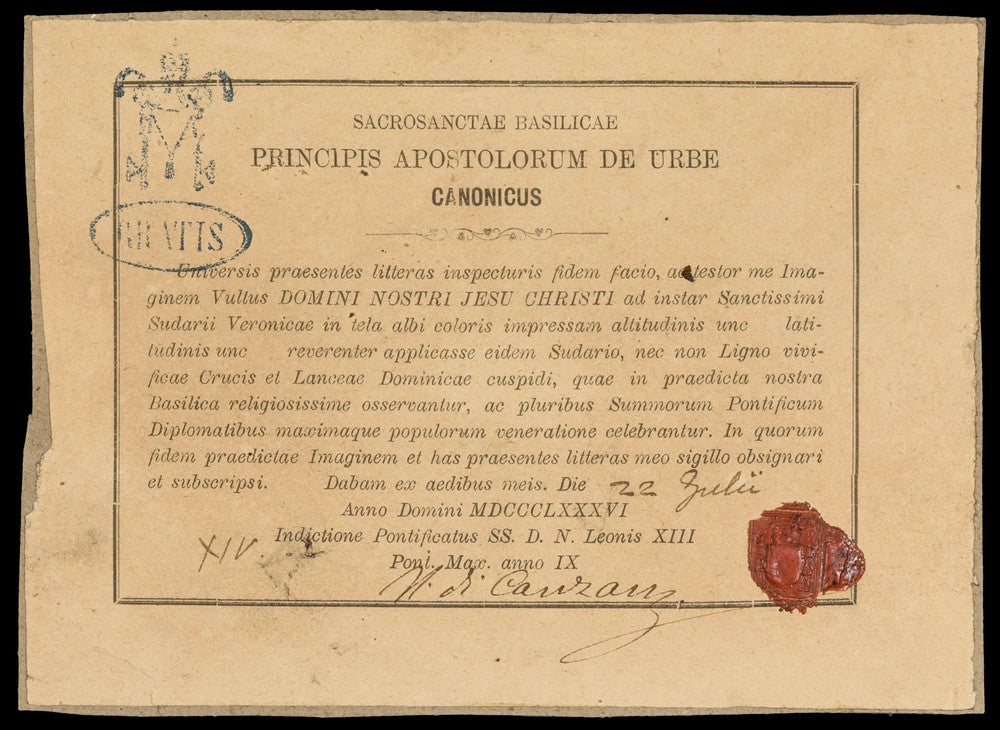 SACROSANCTAE BASILICAE
PRINCIPIS APOSTOLORUM DE URBE
CANONICUS
GRATIS
Universis praesentes litteras inspecturis fidem facio, ac testor me Ima-
ginem Vultus DOMINI NOSTRI JESU CHRISTI ad instar Sanctissimi
Sudarii Veronicae in tela albi coloris impressam altitudinis unc lati-
tudinis unc reverenter applicasse eidem Sudario, nec non Ligno vivi-
ficae Crucis et Lanceae Dominicae cuspidi, quae in praedicta nostra
Basilica religiosissime osservantur, ac pluribus Summorum Pontificum
Diplomatibus maximaque populorum veneratione celebrantur. In quorum
fidem praedictae Imaginem et has praesentes litteras meo sigillo obsignari
et subscripsi. Dabam ex aedibus meis. Die 22 Julii
Anno Domini MDCCCLXXXVI
XIV. Indictione Pontificatus SS. D. N. Leonis XIII
Pont. Max. anno IX
di